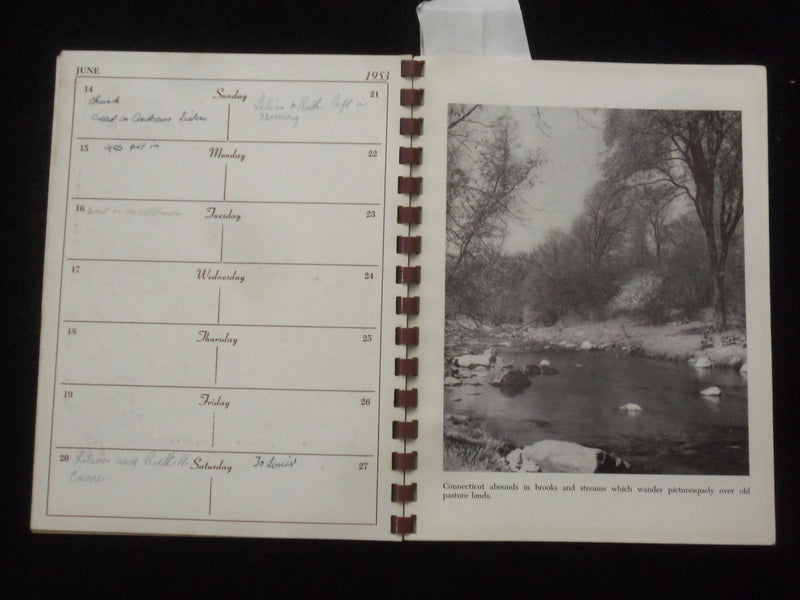 JUNE 1953
14 Sunday 21
Church
Called in Andrews Sisters
Lilian & Ruth left in
morning
15 Monday 22
Gas put in
16 Tuesday 23
Went in
17 Wednesday 24
18 Thursday 25
19 Friday 26
20 Saturday 27
Lilian and Ruth H.
Came
To Louis'
Connecticut abounds in brooks and streams which wander picturesquely over old
pasture lands.